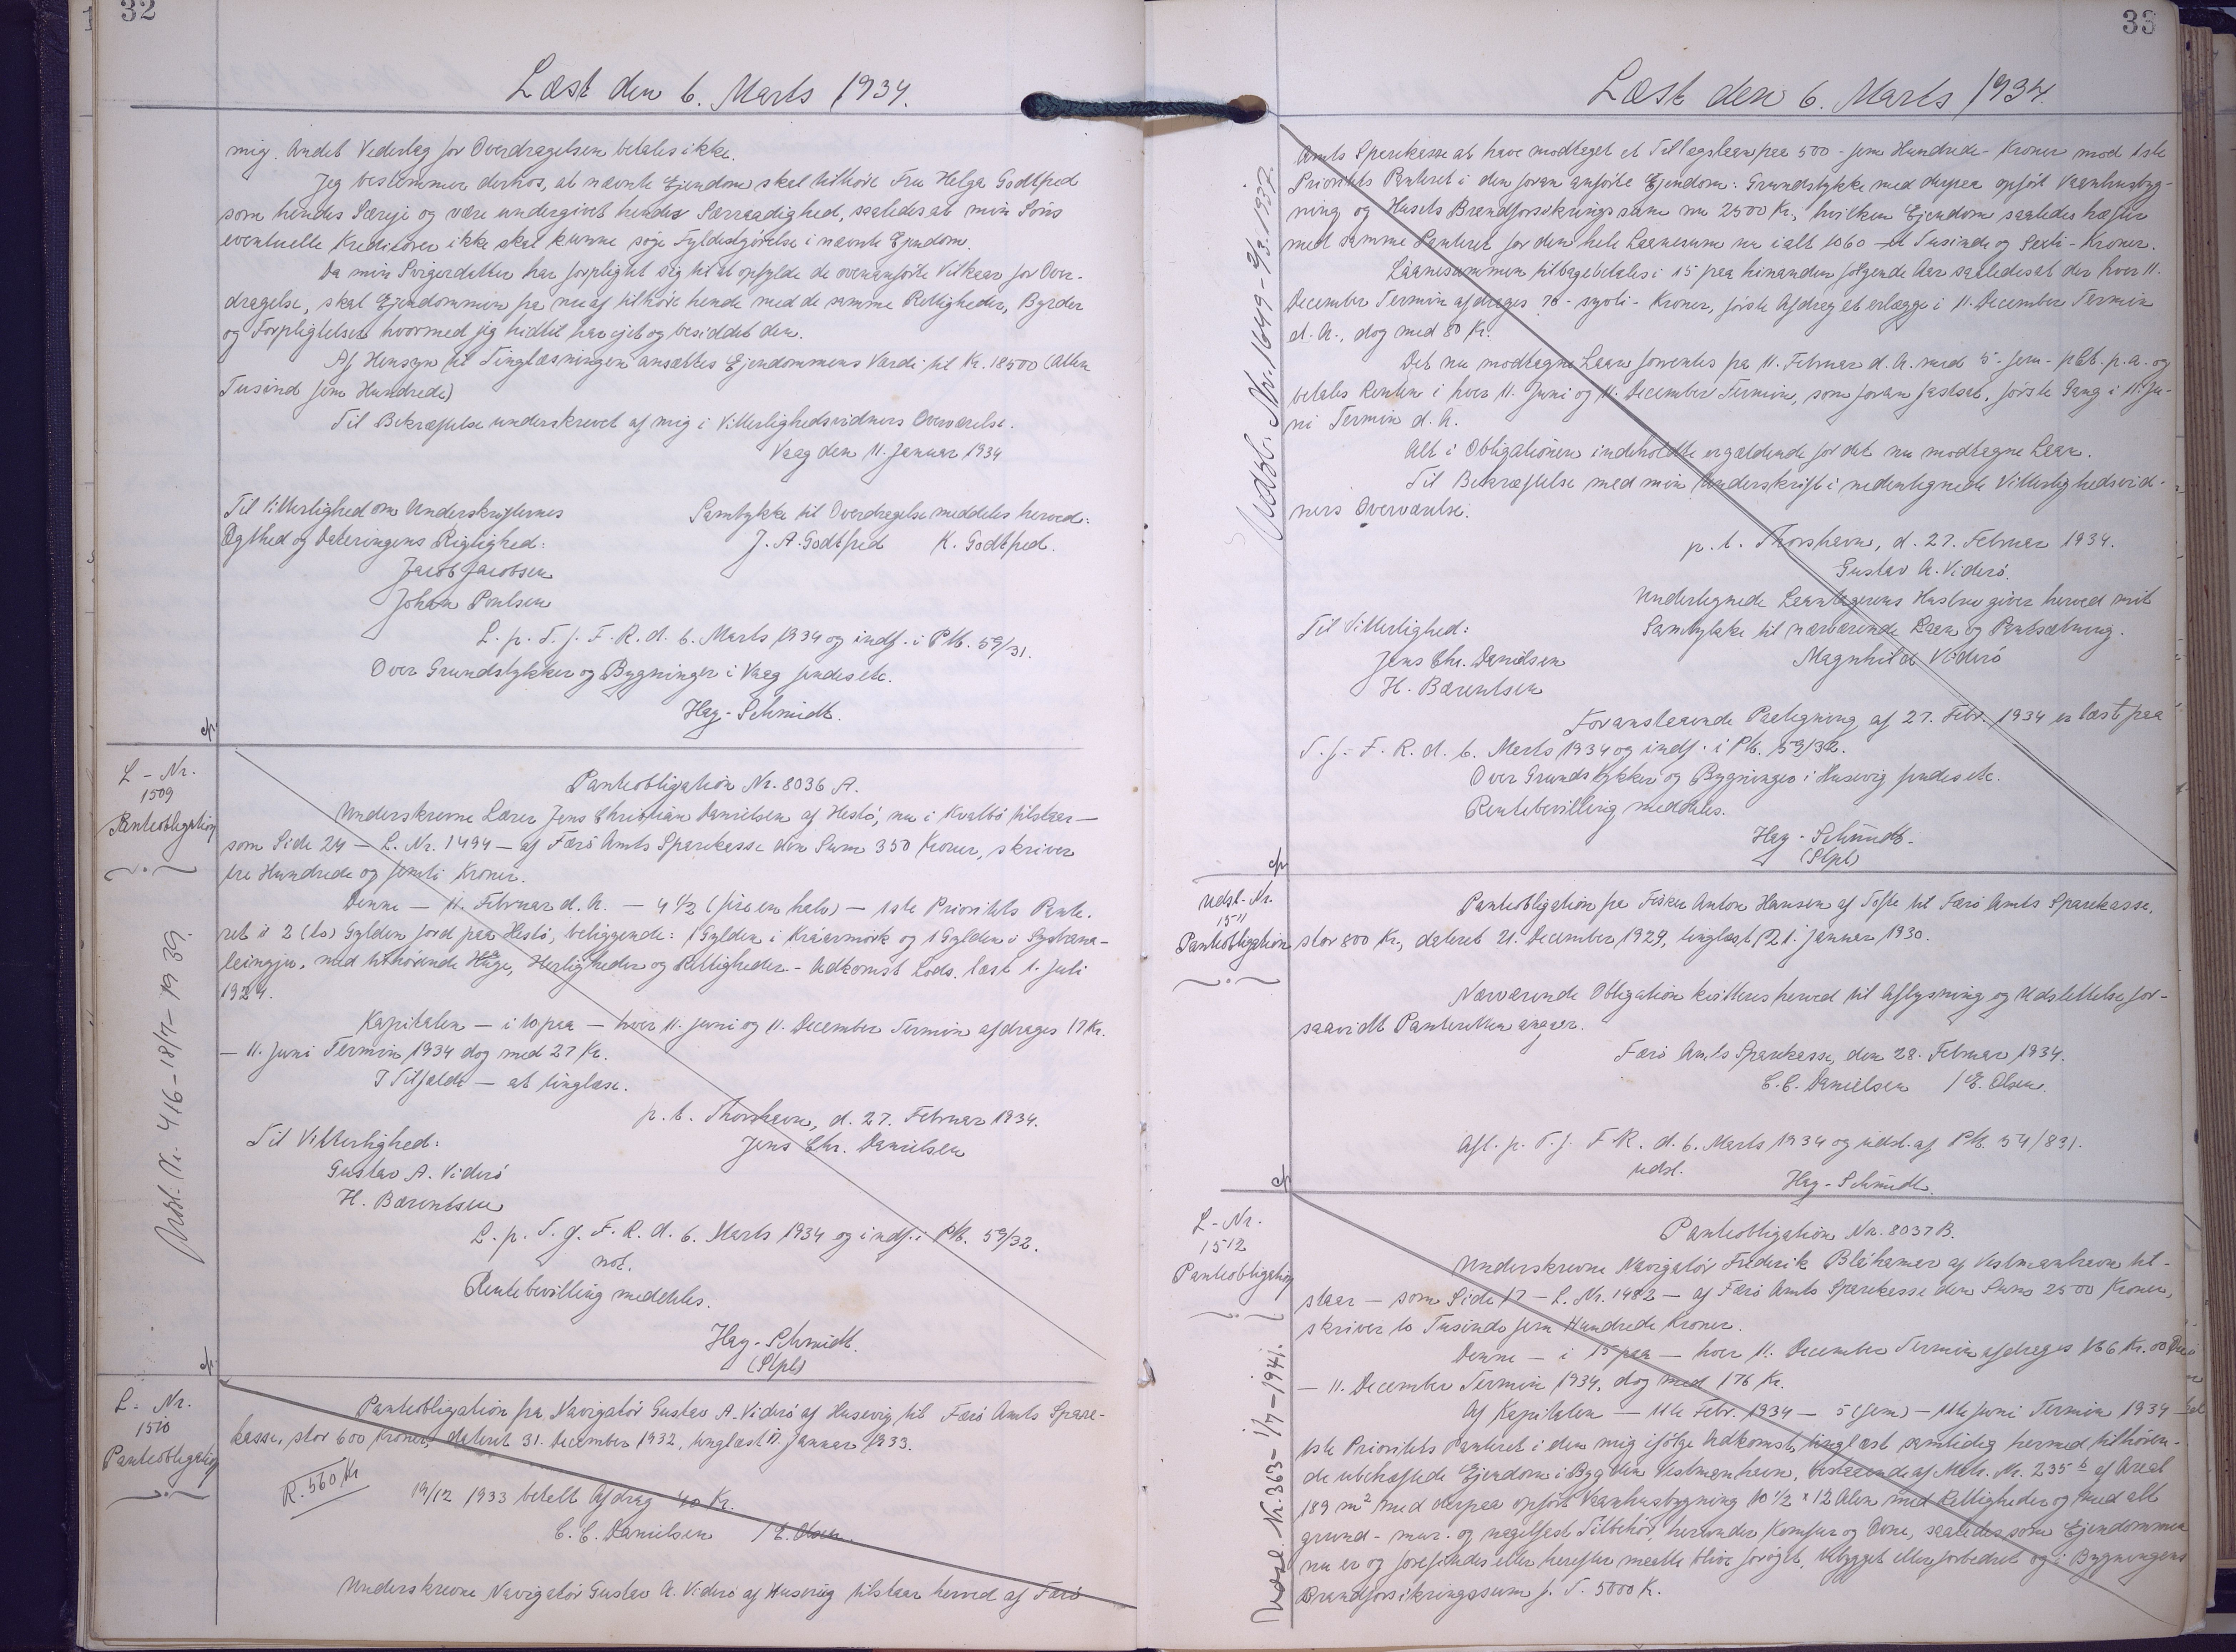 32
Læst den 6. Marts 1934.
mig. Andet Vederlag for Overdragelsen betales ikke.
Jeg bestemmer derhos, at nævnte Ejendom skal tilhöre Fru Helga Godtfred
som hendes Særeje og være undergivet hendes Særraadighed, saaledes at min Söns
eventuelle Kreditorer ikke skal kunne söge Fyldestgörelse i nævnte Ejendom.
Da min Svigerdatter har forpligtet sig til at opfylde de ovenanförte Vilkaar for Over-
dragelse, skal Ejendommen fra nu af tilhöre hende med de samme Rettigheder, Byrder
og Forpligtelser hvormed jeg hidtil har ejet og besiddet den.
Af Hensyn til Tinglæsningen ansættes Ejendommens Værdi til Kr. 18500 (Atten
Tusind fem Hundrede)
Til Bekræftelse underskrevet af mig i Vitterlighedsvidners Overværelse.
Vaag den 11. Januar 1934
Til Vitterlighed om Underskrifternes
Ægthed og Dateringens Rigtighed:
Jacob Jacobsen
Johan Poulsen
Samtykke til Overdragelse meddeles herved:
J. A. Godtfred K. Godtfred.
L. p. T. f. F. R. d. 6. Marts 1934 og indf. i Pb. 59/31.
Over Grundstykker og Bygninger i Vaag findes etc.
Hay-Schmidt.
cfr.
L-Nr.
1509
Panteobligation
Udsl. Nr. 416-18/7-1939.
Panteobligation Nr. 8036 A.
Underskrevne Lærer Jens Christian Danielsen af Hestö, nu i Kvalbö tilstaar—
som Side 24 — L. Nr. 1494 — af Færö Amts Sparekasse den Sum 350 Kroner, skriver
tre Hundrede og femti Kroner.
Denne — 11. Februar d. A. — 4 1/2 (fire en halv) — 1ste Prioritets Pante-
ret i 2 (to) Gylden Jord paa Hestö, beliggende: 1 Gylden i Kráarmörk og 1 Gylden i
leingju, med tilhörende Huge, Herligheder og Rettigheder.- Adkomst Lods. læst 1. Juli
1924.
Kapitalen — i 10 paa — hver 11. Juni og 11. December Termin afdrages 17 Kr.
— 11. Juni Termin 1934 dog med 27 Kr.
I Tilfælde — at tinglæse.
p. t. Thorshavn, d. 27. Februar 1934.
Jens Chr. Danielsen
Til Vitterlighed:
Gustav A. Viderö
H. Bærentsen
L. p. T. f. F. R. d. 6. Marts 1934 og indf. i Pb. 59/32.
not.
Rentebevilling meddeles.
Hay-Schmidt.
(Stpl)
cfr.
L-Nr.
1510
Panteobligation
R. 560 Kr
Panteobligation fra Navigatör Gustav A. Viderö af Husevig til Færö Amts Spare-
kasse, stor 600 Kroner, dateret 31. December 1932, tinglæst 17. Januar 1933.
19/12 1933 betalt Afdrag 40 Kr.
C. C. Danielsen / E. Olsen.
Underskrevne Navigatör Gustav A. Viderö af Husevig tilstaar herved af Færö
33
Læst den 6. Marts 1934.
Udsl. Nr. 1649-9/3 1937.
Amts Sparekasse at have modtaget et Tillægslaan paa 500 - fem Hundrede - Kroner mod 1ste
Prioritets Panteret i den foran anförte Ejendom: Grundstykke med derpaa opfört Vaanhusbyg-
ning og Husets Brandforsikringssum nu 2500 Kr., hvilken Ejendom saaledes hæfter
med samme Panteret for den hele Laanesum nu ialt 1060 - et Tusinde og Sexti - Kroner.
Laanesummen tilbagebetales i 15 paa hinanden fölgende Aar saaledes at der hver 11.
December Termin afdrages 70 - syvti - Kroner, förste Afdrag at erlægge i 11. December Termin
d. A., dog med 80 Kr.
Det nu modtagne Laan forrentes fra 11. Februar d. A. med 5 - fem - pCt. p. a. og
betales Renten i hver 11. Juni og 11. December Termin, som foran fastsat, förste Gang i 11. Ju-
ni Termin d. A.
Alt i Obligationen indeholdte er gældende for det nu modtagne Laan.
Til Bekræftelse med min Underskrift i nedentegnede Vitterlighedsvid-
ners Overværelse.
p. t. Thorshavn, d. 27. Februar 1934.
Gustav A. Viderö.
Undertegnede Laantagerens Hustru giver herved mit
Samtykke til nærværende Laan og Pantsætning.
Magnhild Viderö
Til Vitterlighed:
Jens Chr. Danielsen
H. Bærentsen
Foranstaaende Paategning af 27. Febr. 1934 er læst paa
T. f. F. R. d. 6. Marts 1934 og indf. i Pb. 59/32.
Over Grundstykker og Bygninger i Husevig findes etc.
Rentebevilling meddeles.
Hay-Schmidt.
(Stpl)
cfr.
Udsl.-Nr.
1511
Panteobligation
Panteobligation fra Fisker Anton Hansen af Tofte til Færö Amts Sparekasse,
stor 800 Kr., dateret 21. December 1929, tinglæst 21. Januar 1930.
Nærværende Obligation kvitteres herved til Aflysning og Udslettelse for-
saavidt Panteretten angaar.
Færö Amts Sparekasse, den 28. Februar 1934.
C. C. Danielsen / E. Olsen.
Afl. p. T. f. F. R. d. 6. Marts 1934 og udsl. af Pb. 54/831.
udsl.
Hay-Schmidt.
cfr.
L-Nr.
1512
Panteobligation
Udsl. Nr. 363-1/7-1941.
Panteobligation Nr. 8037 B.
Underskrevne Navigatör Frederik Bláhamer af Vestmanhavn til-
staar — som Side 17 — L. Nr. 1482 — af Færö Amts Sparekasse den Sum 2500 Kroner,
skriver to Tusinde fem Hundrede Kroner.
Denne — i 15 paa — hver 11. December Termin afdrages 166 Kr. 00 Öre
— 11. December Termin 1934, dog med 176 Kr.
Af Kapitalen — 11te Febr. 1934 — 5 (fem) — 11te Juni Termin 1934
1ste Prioritets Panteret i den mig ifölge Adkomst, tinglæst samtidig hermed tilhören-
de ubehæftede Ejendom i Bygden Vestmanhavn, bestaaende af Matr. Nr. 235 b af Areal
189 m² med derpaa opfört Vaanhusbygning 10 1/2 x 12 Alen med Rettigheder og med alt
grund- mur- og nagelfast Tilbehör, herunder Komfur og Ovne, saaledes som Ejendommen
nu er og forefindes eller herefter maatte blive foröget, bebygget eller forbedret og i Bygningens
Brandforsikringssum f. T. 5000 Kr.